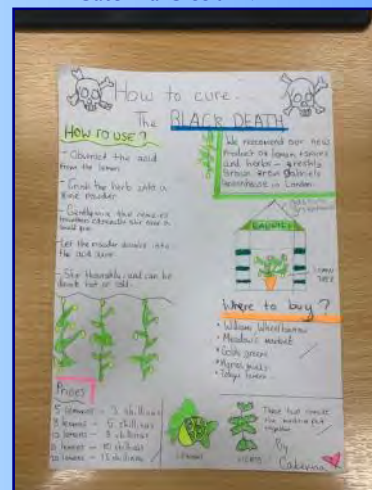 How to cure
The BLACK DEATH
How to use?
- Obstruct the acid
from the lemon
- Grind the herb into a
fine powder
- Gently mix the remedies
together over a
small fire
- Let the powder dissolve into
the acid juice
- Stir thoroughly and can be
drunk hot or cold.
We recommend our new
product of lemon + spices
and herbs - freshly
grown from gabriels
greenhouse in London
GABRIEL'S
LEMON
TREE
Where to buy?
• William Wheelbarrow
• Meadows market
• Gods greens
Prices
5 lemons - 3 shillings
8 lemons - 5 shillings
10 lemons - 8 shillings
lemons - 10 shillings
lemons - 15 shillings
LEMONS
HERBS
These two
the
together
By
Caterina